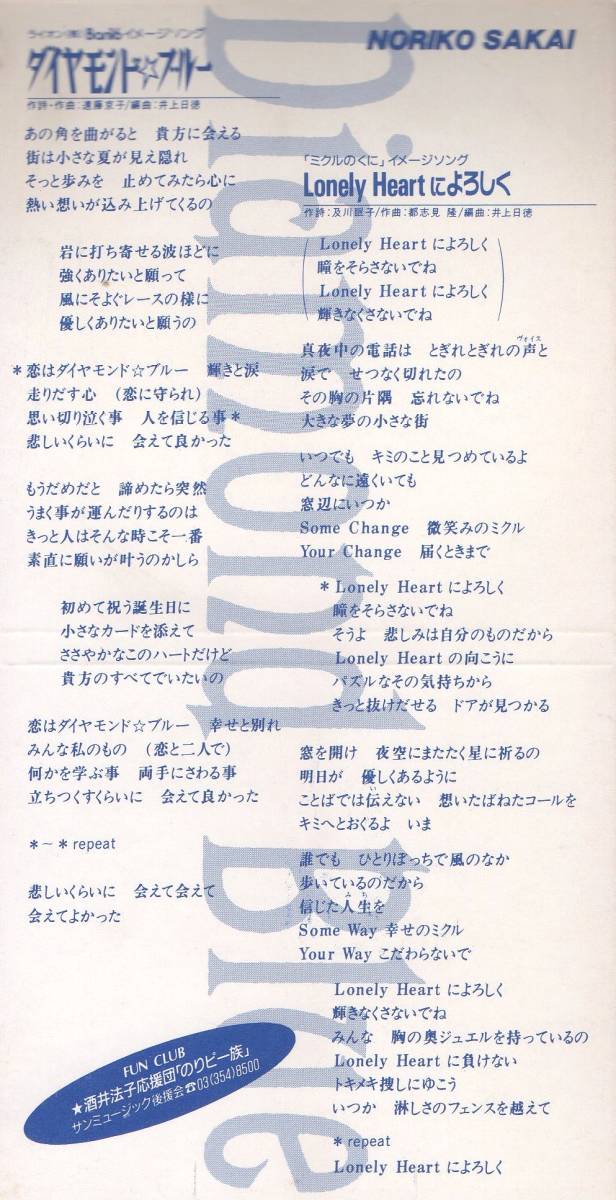 NORIKO SAKAI
Diamond Blue
ライオン(株)Banのイメージソング
ダイヤモンド☆ブルー
作詩・作曲:遠藤京子/編曲:井上日徳
あの角を曲がると 貴方に会える
街は小さな夏が見え隠れ
そっと歩みを 止めてみたら心に
熱い想いが込み上げてくるの
岩に打ち寄せる波ほどに
強くありたいと願って
風にそよぐレースの様に
優しくありたいと願うの
*恋はダイヤモンド☆ブルー 輝きと涙
走りだす心 (恋に守られ)
思い切り泣く事 人を信じる事*
悲しいくらいに 会えて良かった
もうだめだと 諦めたら突然
うまく事が運んだりするのは
きっと人はそんな時こそ一番
素直に願いが叶うのかしら
初めて祝う誕生日に
小さなカードを添えて
ささやかなこのハートだけど
貴方のすべてでいたいの
恋はダイヤモンド☆ブルー 幸せと別れ
みんな私のもの (恋と二人で)
何かを学ぶ事 両手にさわる事
立ちつくすくらいに 会えて良かった
*~* repeat
悲しいくらいに 会えて会えて
会えてよかった
FUN CLUB
★酒井法子応援団「のりピー一族」
サンミュージック後援会☎03(354)8500
「ミクルのくに」イメージソング
Lonely Heartによろしく
作詩:及川眠子/作曲:都志見 隆/編曲:井上日徳
(Lonely Heart によろしく
瞳をそらさないでね
Lonely Heart によろしく
輝きなくさないでね)
真夜中の電話は とぎれとぎれの声(ヴォイス)と
涙で せつなく切れたの
その胸の片隅 忘れないでね
大きな夢の小さな街
いつでも キミのこと見つめているよ
どんなに遠くいても
窓辺にいつか
Some Change 微笑みのミクル
Your Change 届くときまで
* Lonely Heart によろしく
瞳をそらさないでね
そうよ 悲しみは自分のものだから
Lonely Heart の向こうに
パズルなその気持ちから
きっと抜けだせる ドアが見つかる
窓を開け 夜空にまたたく星に祈るの
明日が 優しくあるように
ことばでは伝(い)えない 想いたばねたコールを
キミへとおくるよ いま
誰でも ひとりぼっちで風のなか
歩いているのだから
信じた人生(みち)を
Some Way 幸せのミクル
Your Way こだわらないで
Lonely Heart によろしく
輝きなくさないでね
みんな 胸の奥ジュエルを持っているの
Lonely Heart に負けない
トキメキ捜しにゆこう
いつか 淋しさのフェンスを越えて
* repeat
Lonely Heart によろしく